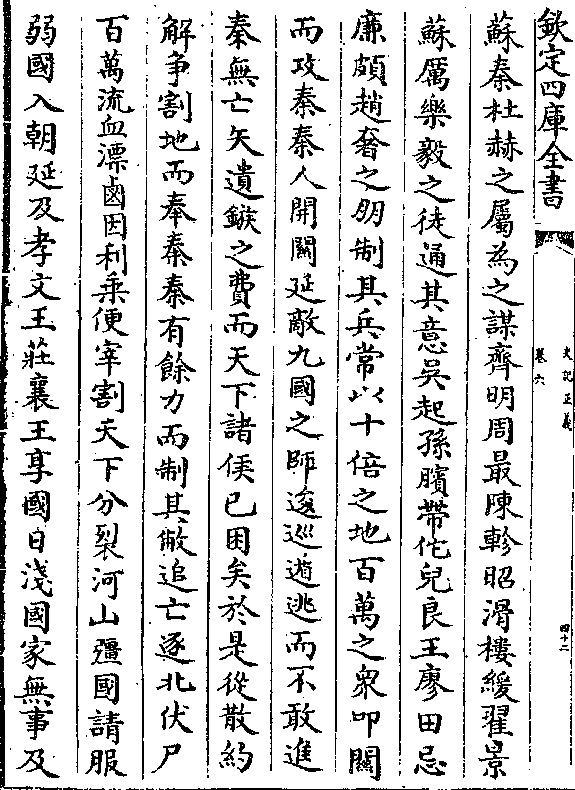 欽定四庫全書
史記正義
卷六
四十二
蘇秦杜赫之屬為之謀齊明周最陳軫昭滑樓緩翟景
蘇厲樂毅之徒通其意吳起孫臏帶佗兒良王廖田忌
廉頗趙奢之朋制其兵常以十倍之地百萬之衆叩關
而攻秦秦人開關延敵九國之師逡巡遁逃而不敢進
秦無亡矢遺鏃之費而天下諸侯已困矣於是從散約
解爭割地而奉秦秦有餘力而制其敝追亡逐北伏尸
百萬流血漂鹵因利乘便宰割天下分裂河山彊國請服
弱國入朝延及孝文王莊襄王享國日淺國家無事及